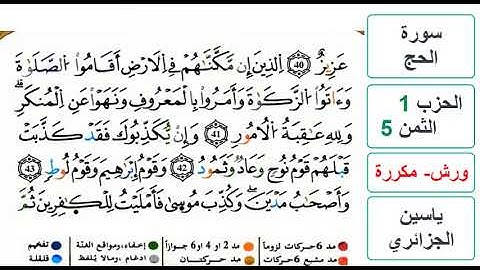 عَزِيزٌ ﴿40﴾ اَ۬لذِينَ إِن مَّكَّنَّٰهُمْ فِے اِ۬لَارْضِ أَقَامُواْ اُ۬لصَّلَوٰةَ
وَءَاتَوُاْ اُ۬لزَّكَوٰةَ وَأَمَرُواْ بِالْمَعْرُوفِ وَنَهَوْاْ عَنِ اِ۬لْمُنكَرِۖ
وَلِلهِ عَٰقِبَةُ اُ۬لُامُورِ ﴿41﴾ وَإِنْ يُّكَذِّبُوكَ فَقَدْ كَذَّبَتْ
قَبْلَهُمْ قَوْمُ نُوحٖ وَعَادٞ وَثَمُودُ ﴿42﴾ وَقَوْمُ إِبْرَٰهِيمَ وَقَوْمُ لُوطٖ ﴿43﴾
وَأَصْحَٰبُ مَدْيَنَۖ وَكُذِّبَ مُوسَىٰ فَأَمْلَيْتُ لِلْكٰفِرِينَ ثُمَّ
مد 6 حركات لزوماً مد 2 أو 4 أو 6 جوازاً إخفاء، ومواقع الغنة تفخيم
مد مشبع 6 حركات مد حركتان إدغام، وما لا يُلفظ قلقلة
سورة
الحج
الحزب 1
الثمن 5
ورش- مكررة
ياسين
الجزائري